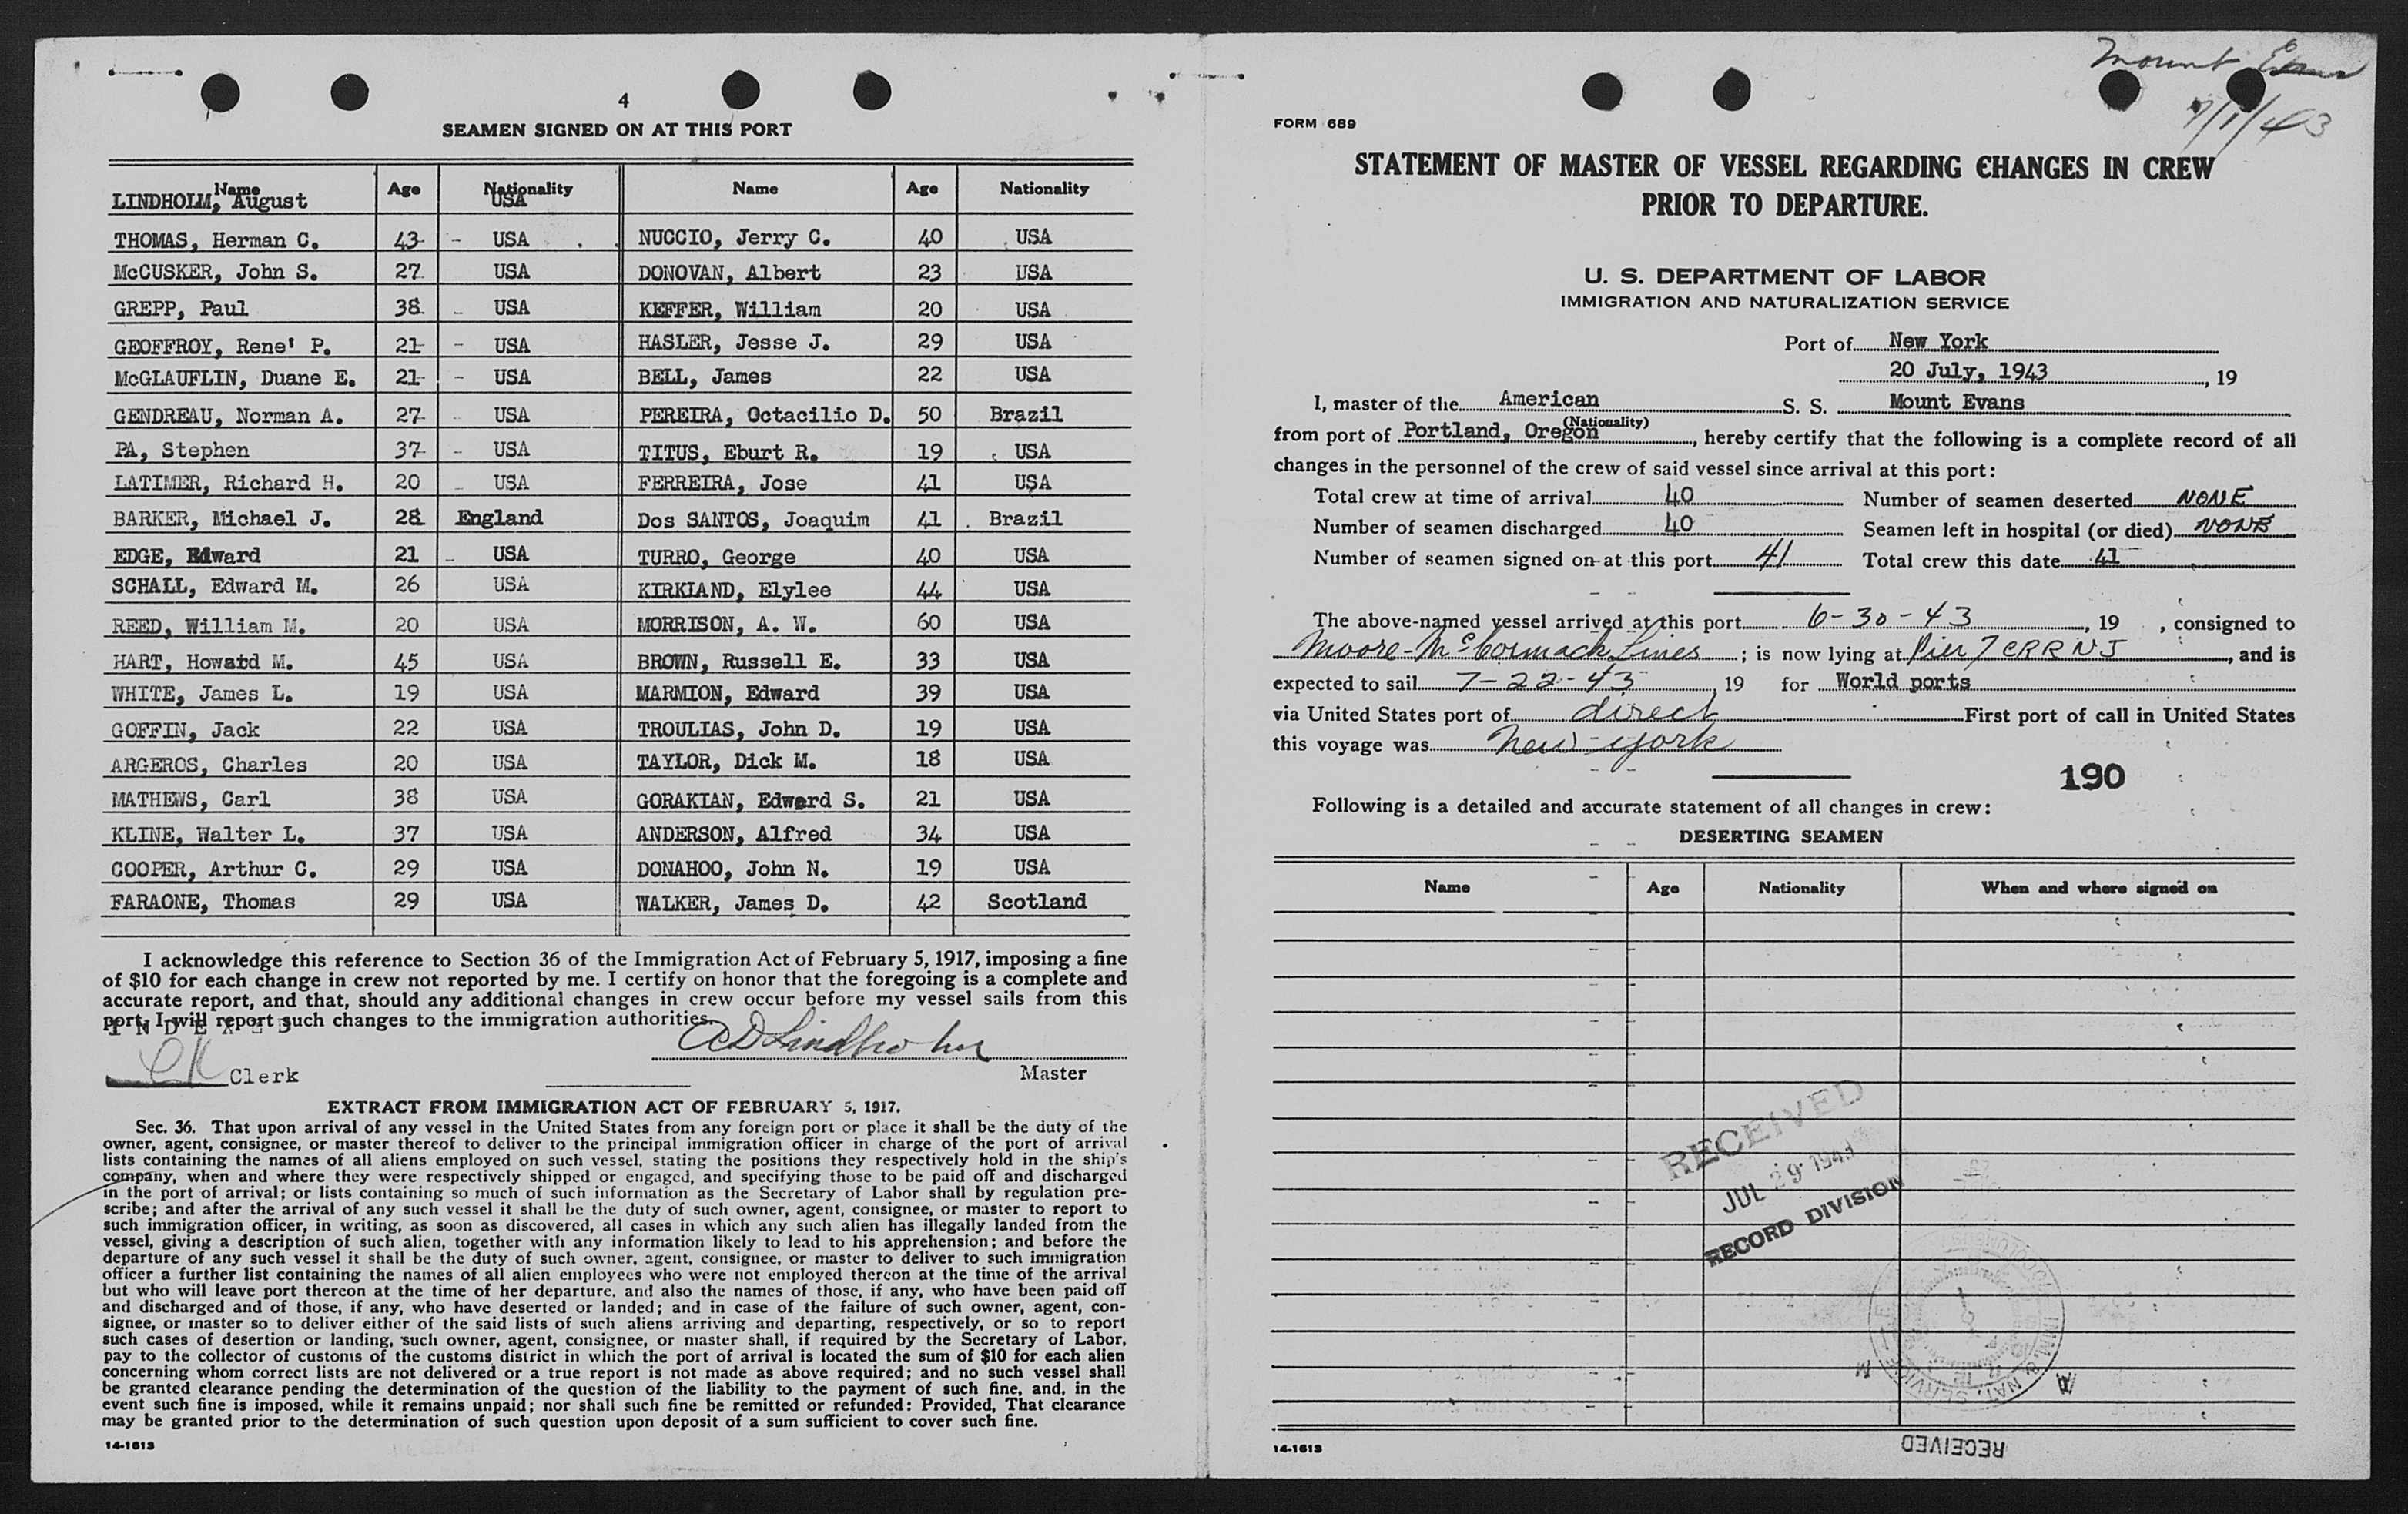 4
SEAMEN SIGNED ON AT THIS PORT
Name Age Nationality Name Age Nationality
LINDHOLM, August USA
THOMAS, Herman C. 43 - USA NUCCIO, Jerry C. 40 USA
McCUSKER, John S. 27 USA DONOVAN, Albert 23 USA
GREPP, Paul 38 - USA KEFFER, William 20 USA
GEOFFROY, Rene' P. 21 - USA HASLER, Jesse J. 29 USA
McGLAUFLIN, Duane E. 21 - USA BELL, James 22 USA
GENDREAU, Norman A. 27 - USA PEREIRA, Octacilio D. 50 Brazil
PA, Stephen 37 - USA TITUS, Eburt R. 19 USA
LATIMER, Richard H. 20 - USA FERREIRA, Jose 41 USA
BARKER, Michael J. 28 England Dos SANTOS, Joaquim 41 Brazil
EDGE, Edward 21 - USA TURRO, George 40 USA
SCHALL, Edward M. 26 USA KIRKLAND, Elylee 44 USA
REED, William M. 20 USA MORRISON, A. W. 60 USA
HART, Howard M. 45 USA BROWN, Russell E. 33 USA
WHITE, James L. 19 USA MARMION, Edward 39 USA
GOFFIN, Jack 22 USA TROULIAS, John D. 19 USA
ARGEROS, Charles 20 USA TAYLOR, Dick M. 18 USA
MATHEWS, Carl 38 USA GORAKIAN, Edward S. 21 USA
KLINE, Walter L. 37 USA ANDERSON, Alfred 34 USA
COOPER, Arthur C. 29 USA DONAHOO, John N. 19 USA
FARAONE, Thomas 29 USA WALKER, James D. 42 Scotland
I acknowledge this reference to Section 36 of the Immigration Act of February 5, 1917, imposing a fine
of $10 for each change in crew not reported by me. I certify on honor that the foregoing is a complete and
accurate report, and that, should any additional changes in crew occur before my vessel sails from this
port, I will report such changes to the immigration authorities.
INDEXED
CK Clerk
A D Lindholm
Master
EXTRACT FROM IMMIGRATION ACT OF FEBRUARY 5, 1917.
Sec. 36. That upon arrival of any vessel in the United States from any foreign port or place it shall be the duty of the
owner, agent, consignee, or master thereof to deliver to the principal immigration officer in charge of the port of arrival
lists containing the names of all aliens employed on such vessel, stating the positions they respectively hold in the ship's
company, when and where they were respectively shipped or engaged, and specifying those to be paid off and discharged
in the port of arrival; or lists containing so much of such information as the Secretary of Labor shall by regulation pre-
scribe; and after the arrival of any such vessel it shall be the duty of such owner, agent, consignee, or master to report to
such immigration officer, in writing, as soon as discovered, all cases in which any such alien has illegally landed from the
vessel, giving a description of such alien, together with any information likely to lead to his apprehension; and before the
departure of any such vessel it shall be the duty of such owner, agent, consignee, or master to deliver to such immigration
officer a further list containing the names of all alien employees who were not employed thereon at the time of the arrival
but who will leave port thereon at the time of her departure, and also the names of those, if any, who have been paid off
and discharged and of those, if any, who have deserted or landed; and in case of the failure of such owner, agent, con-
signee, or master so to deliver either of the said lists of such aliens arriving and departing, respectively, or so to report
such cases of desertion or landing, such owner, agent, consignee, or master shall, if required by the Secretary of Labor,
pay to the collector of customs of the customs district in which the port of arrival is located the sum of $10 for each alien
concerning whom correct lists are not delivered or a true report is not made as above required; and no such vessel shall
be granted clearance pending the determination of the question of the liability to the payment of such fine, and, in the
event such fine is imposed, while it remains unpaid; nor shall such fine be remitted or refunded: Provided, That clearance
may be granted prior to the determination of such question upon deposit of a sum sufficient to cover such fine.
14-1613
Mount Evans
7/1/43
FORM 689
STATEMENT OF MASTER OF VESSEL REGARDING CHANGES IN CREW
PRIOR TO DEPARTURE.
U. S. DEPARTMENT OF LABOR
IMMIGRATION AND NATURALIZATION SERVICE
Port of New York
20 July, 1943, 19
I, master of the American S. S. Mount Evans
(Nationality)
from port of Portland, Oregon, hereby certify that the following is a complete record of all
changes in the personnel of the crew of said vessel since arrival at this port:
Total crew at time of arrival 40 Number of seamen deserted NONE
Number of seamen discharged 40 Seamen left in hospital (or died) NONE
Number of seamen signed on at this port 41 Total crew this date 41
The above-named vessel arrived at this port 6-30-43, 19 , consigned to
Moore-McCormack Lines; is now lying at Pier 7 CRR NJ, and is
expected to sail 7-22-43, 19 for World ports
via United States port of direct First port of call in United States
this voyage was New York
190
Following is a detailed and accurate statement of all changes in crew:
DESERTING SEAMEN
Name Age Nationality When and where signed on
RECEIVED
JUL 29 1943
RECORD DIVISION
RECEIVED
14-1613